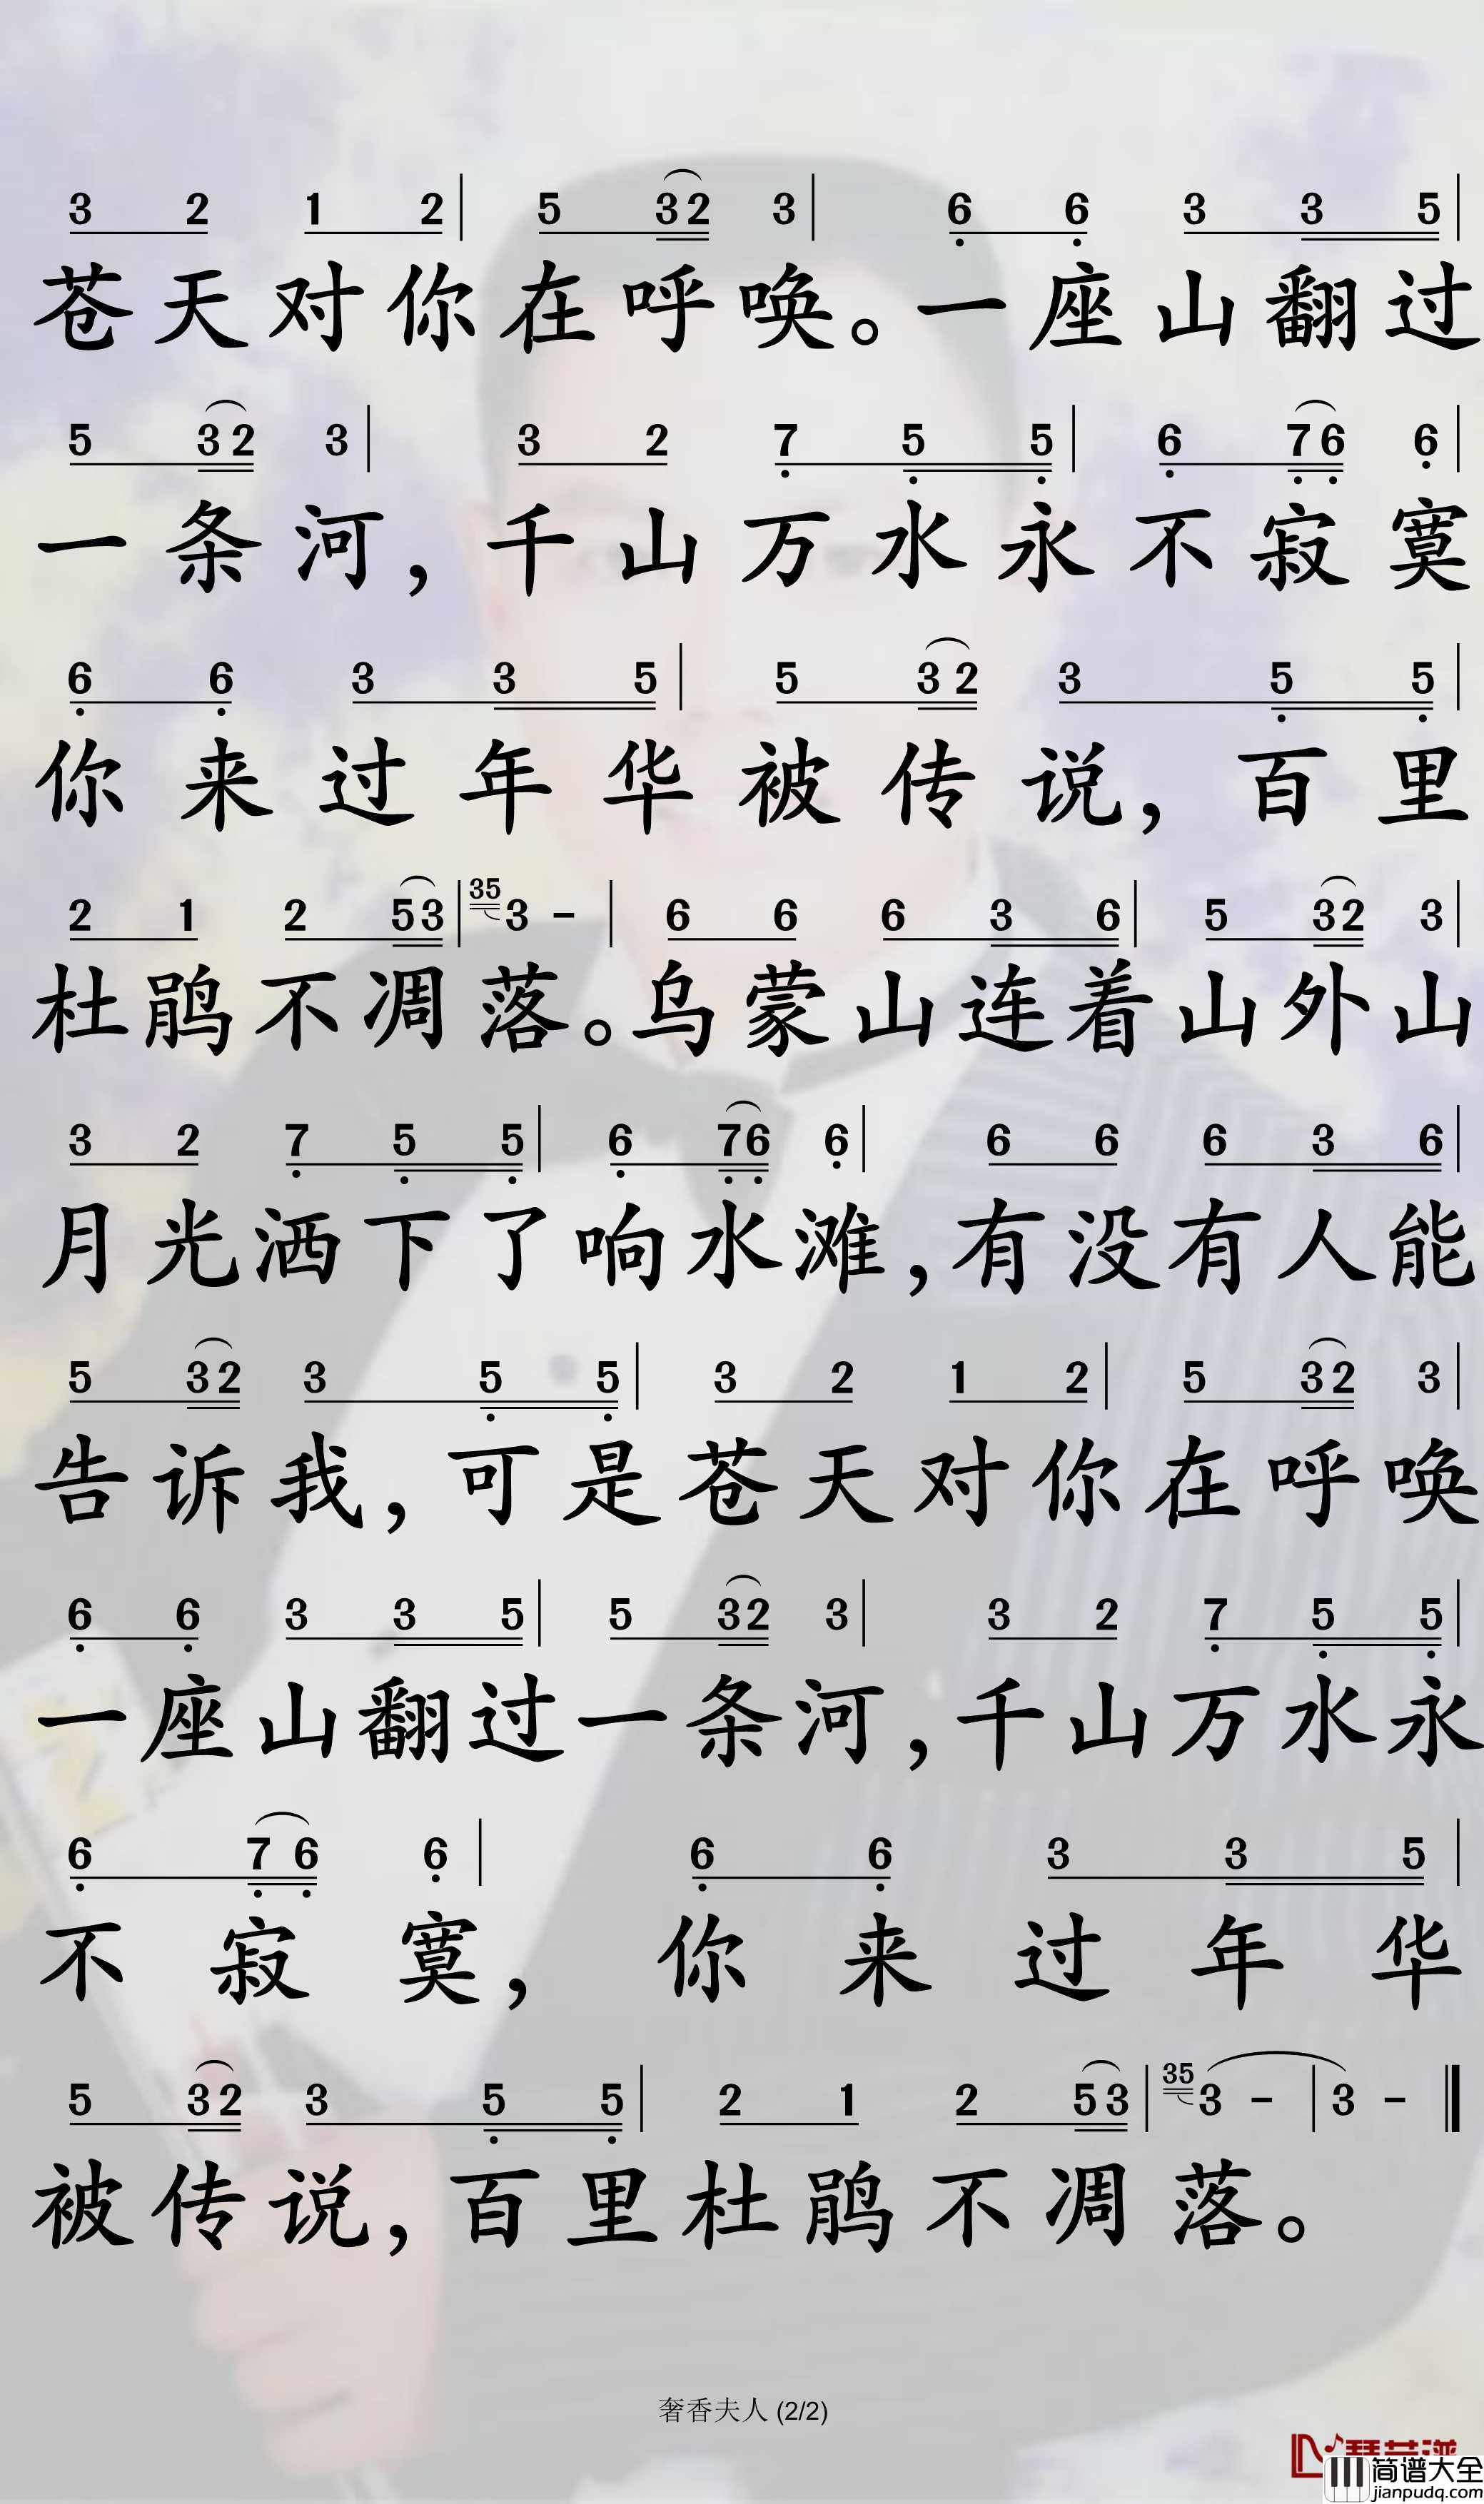 3 2 1 2 | 5 32 3 | 6 6 3 3 5 |
苍天对你在呼唤。一座山翻过
5 32 3 | 3 2 7 5 5 | 6 76 6 |
一条河，千山万水永不寂寞
6 6 3 3 5 | 5 32 3 5 5 |
你来过年华被传说，百里
2 1 2 53 | 35 3 - | 6 6 6 3 6 | 5 32 3 |
杜鹃不凋落。乌蒙山连着山外山
3 2 7 5 5 | 6 76 6 | 6 6 6 3 6 |
月光洒下了响水滩，有没有人能
5 32 3 5 5 | 3 2 1 2 | 5 32 3 |
告诉我，可是苍天对你在呼唤
6 6 3 3 5 | 5 32 3 | 3 2 7 5 5 |
一座山翻过一条河，千山万水永
6 76 6 | 6 6 3 3 5 |
不寂寞，你来过年华
5 32 3 5 5 | 2 1 2 53 | 35 3 - | 3 - ‖
被传说，百里杜鹃不凋落。
奢香夫人 (2/2)
简谱大全
jianpudq.com